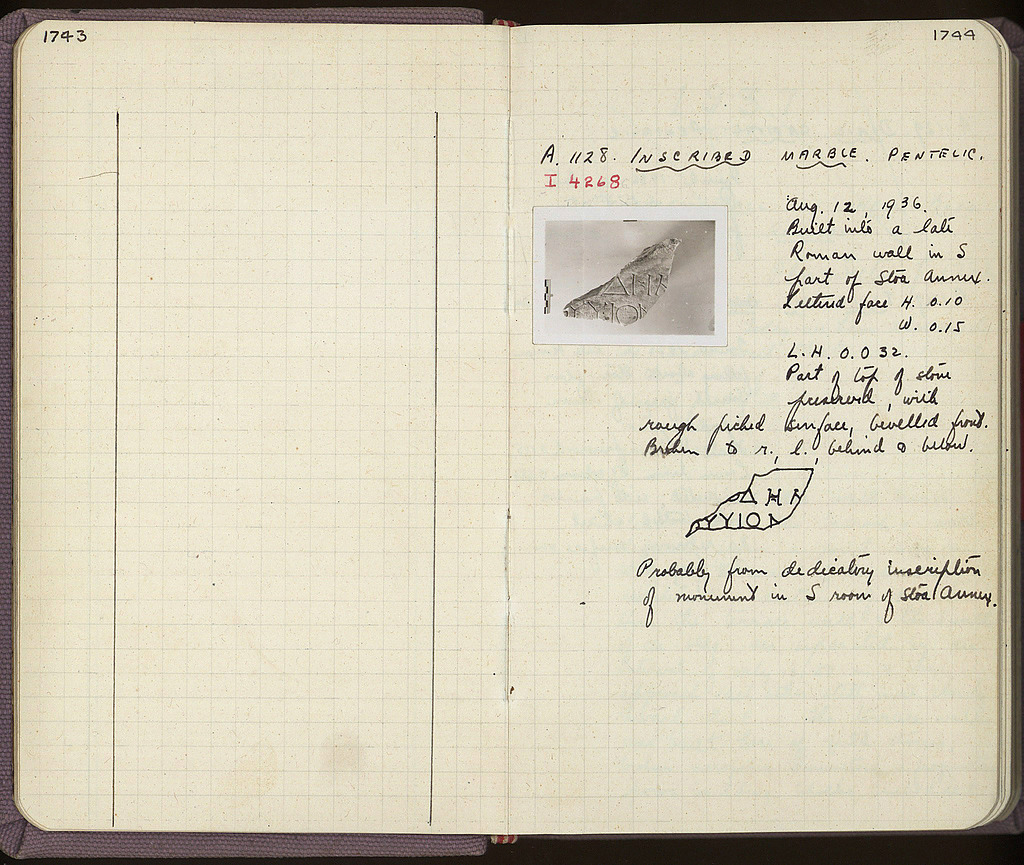 1743
1744
A. 1128. INSCRIBED MARBLE. PENTELIC.
I 4268
Aug. 12, 1936.
Built into a late
Roman wall in S
part of Stoa Annex.
Lettered face H. 0.10
W. 0.15
L.H. 0.032.
Part of top of stone
preserved, with
rough picked surface, bevelled front.
Broken to r., l., behind & below.
ΔΗ
ΥΥΙΟ
Probably from dedicatory inscription
of monument in S room of Stoa Annex.